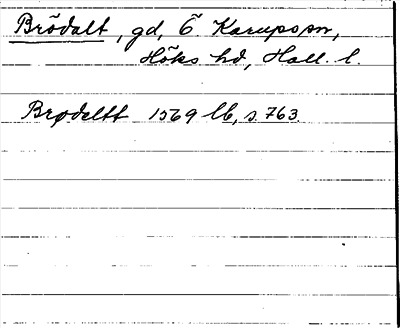 Brödalt, gd, Ö. Karups sn,
Höks hd, Hall. l.
Brødeltt 1569 lb, s. 763.